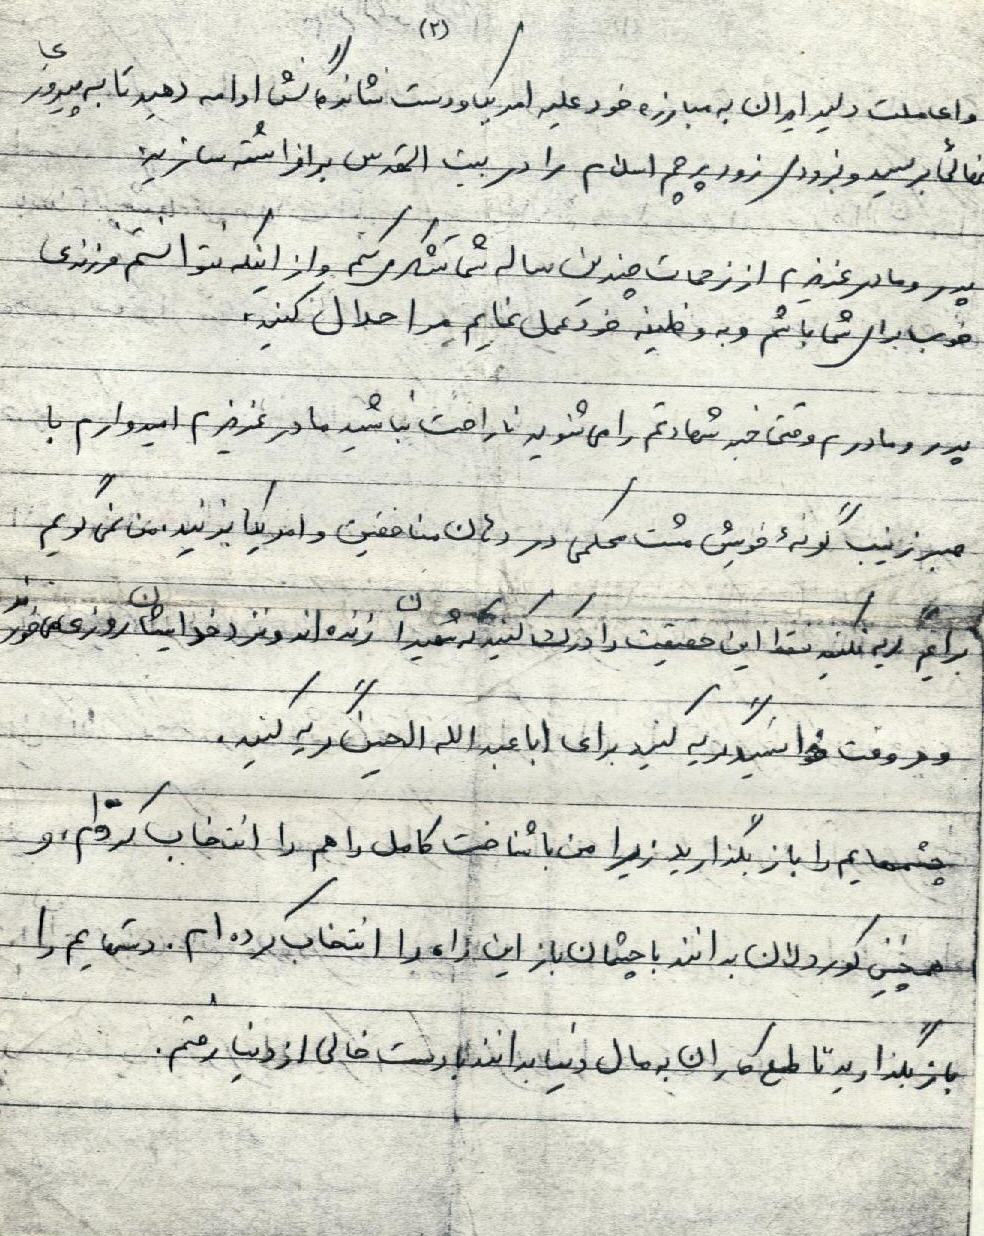 (۲)
و ای ملت دلیر ایران به مبارزه خود علیه امریکا و دست نشاندگانش ادامه دهید تا به پیروزی
نهائی برسید و بزودی زود پرچم اسلام را در بیت المقدس برافراشته سازید.
پدر و مادر عزیزم از زحمات چندین ساله شما تشکر میکنم و از اینکه نتوانستم فرزندی
خوب برای شما باشم و به وظیفه خود عمل نمایم مرا حلال کنید.
پدر و مادرم وقتی خبر شهادتم را می شنوید ناراحت نباشید مادر عزیزم امیدوارم با
صبر زینب گونهٔ خویش مشت محکمی در دهان منافقین و امریکا بزنید. من نمی گویم
برایم گریه نکنید فقط این حقیقت را درک کنید که شهیدان زنده اند و نزد خدا ایشان روزی می خورند
و هر وقت خواستید گریه کنید برای ابا عبد الله الحسین گریه کنید.
چشمهایم را باز بگذارید زیرا من با شناخت کامل راهم را انتخاب کرده ام، و
همچنین کوردلان بدانند با چشمان باز این راه را انتخاب کرده ام. دستهایم را
باز بگذارید تا طمع کاران به مال دنیا بدانند با دست خالی از دنیا رفتم.